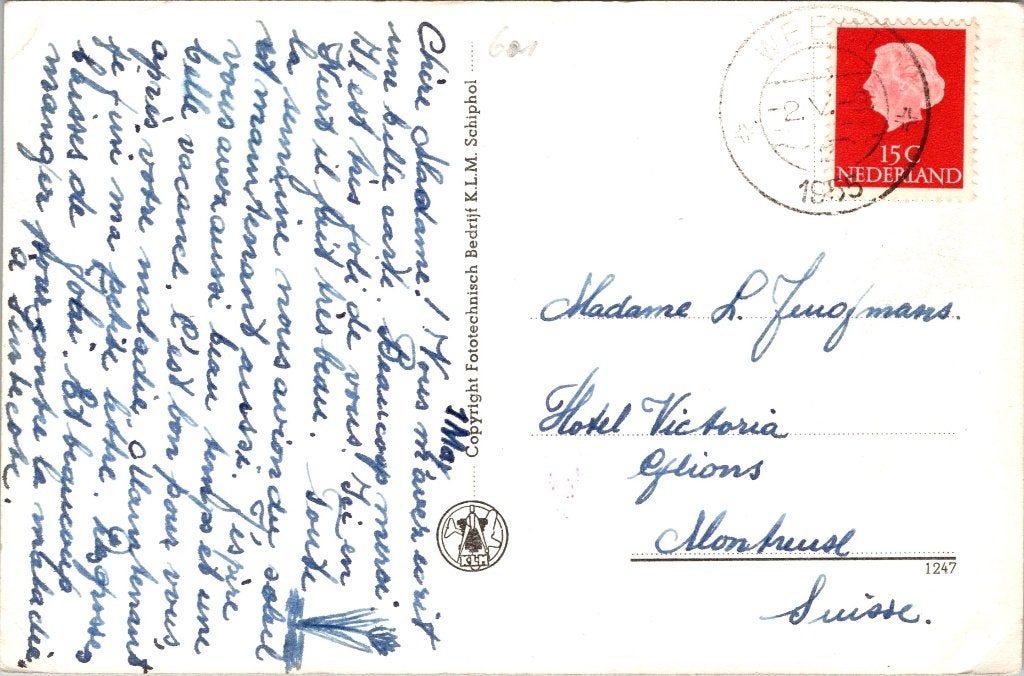 Chère Madame! Vous m'aver ecrit
une belle carte. Beaucoup merci
Il est tris joli de vous. Ici en
Weert il fait très beau. Toute
la semaine nous avion du soleil
et maintenant aussi. J'espère
vous aver aussi beau temps et une
belle vacance. C'est bon pour vous,
après votre maladie. Maintenant
je fini ma petite lettre. Des grosses
baisses de Jobi. Et beaucoup
manger fourgonte la maladie
a Suntecok.
1 May
Copyright Fototechnisch Bedrijf K.L.M. Schiphol
K.L.M.
601
WEERT
2.V.
1955
15C
NEDERLAND
Madame L. Jungmans.
Hotel Victoria
Glions
Montreuse
1247
Suisse.